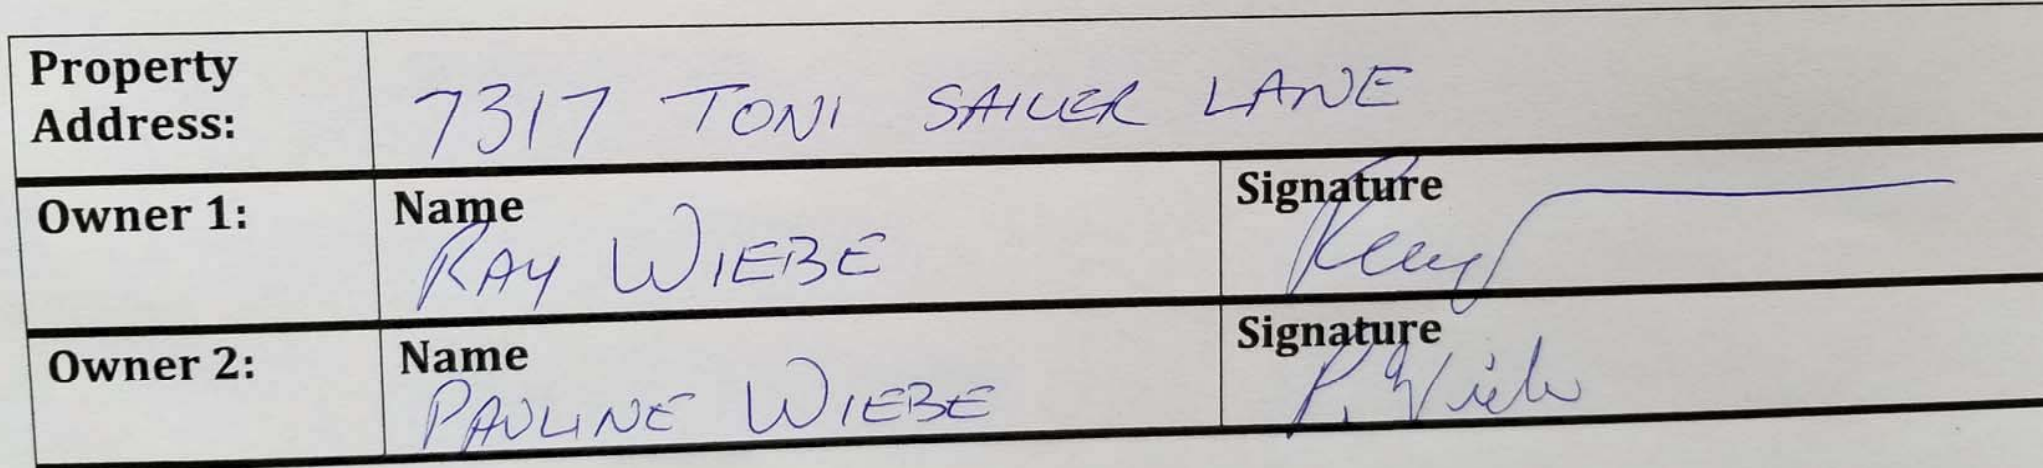 Property
Address:
7317 TONI SAILER LANE
Owner 1:
Name
RAY WIEBE
Signature
Owner 2:
Name
PAULINE WIEBE
Signature
P. Wiebe